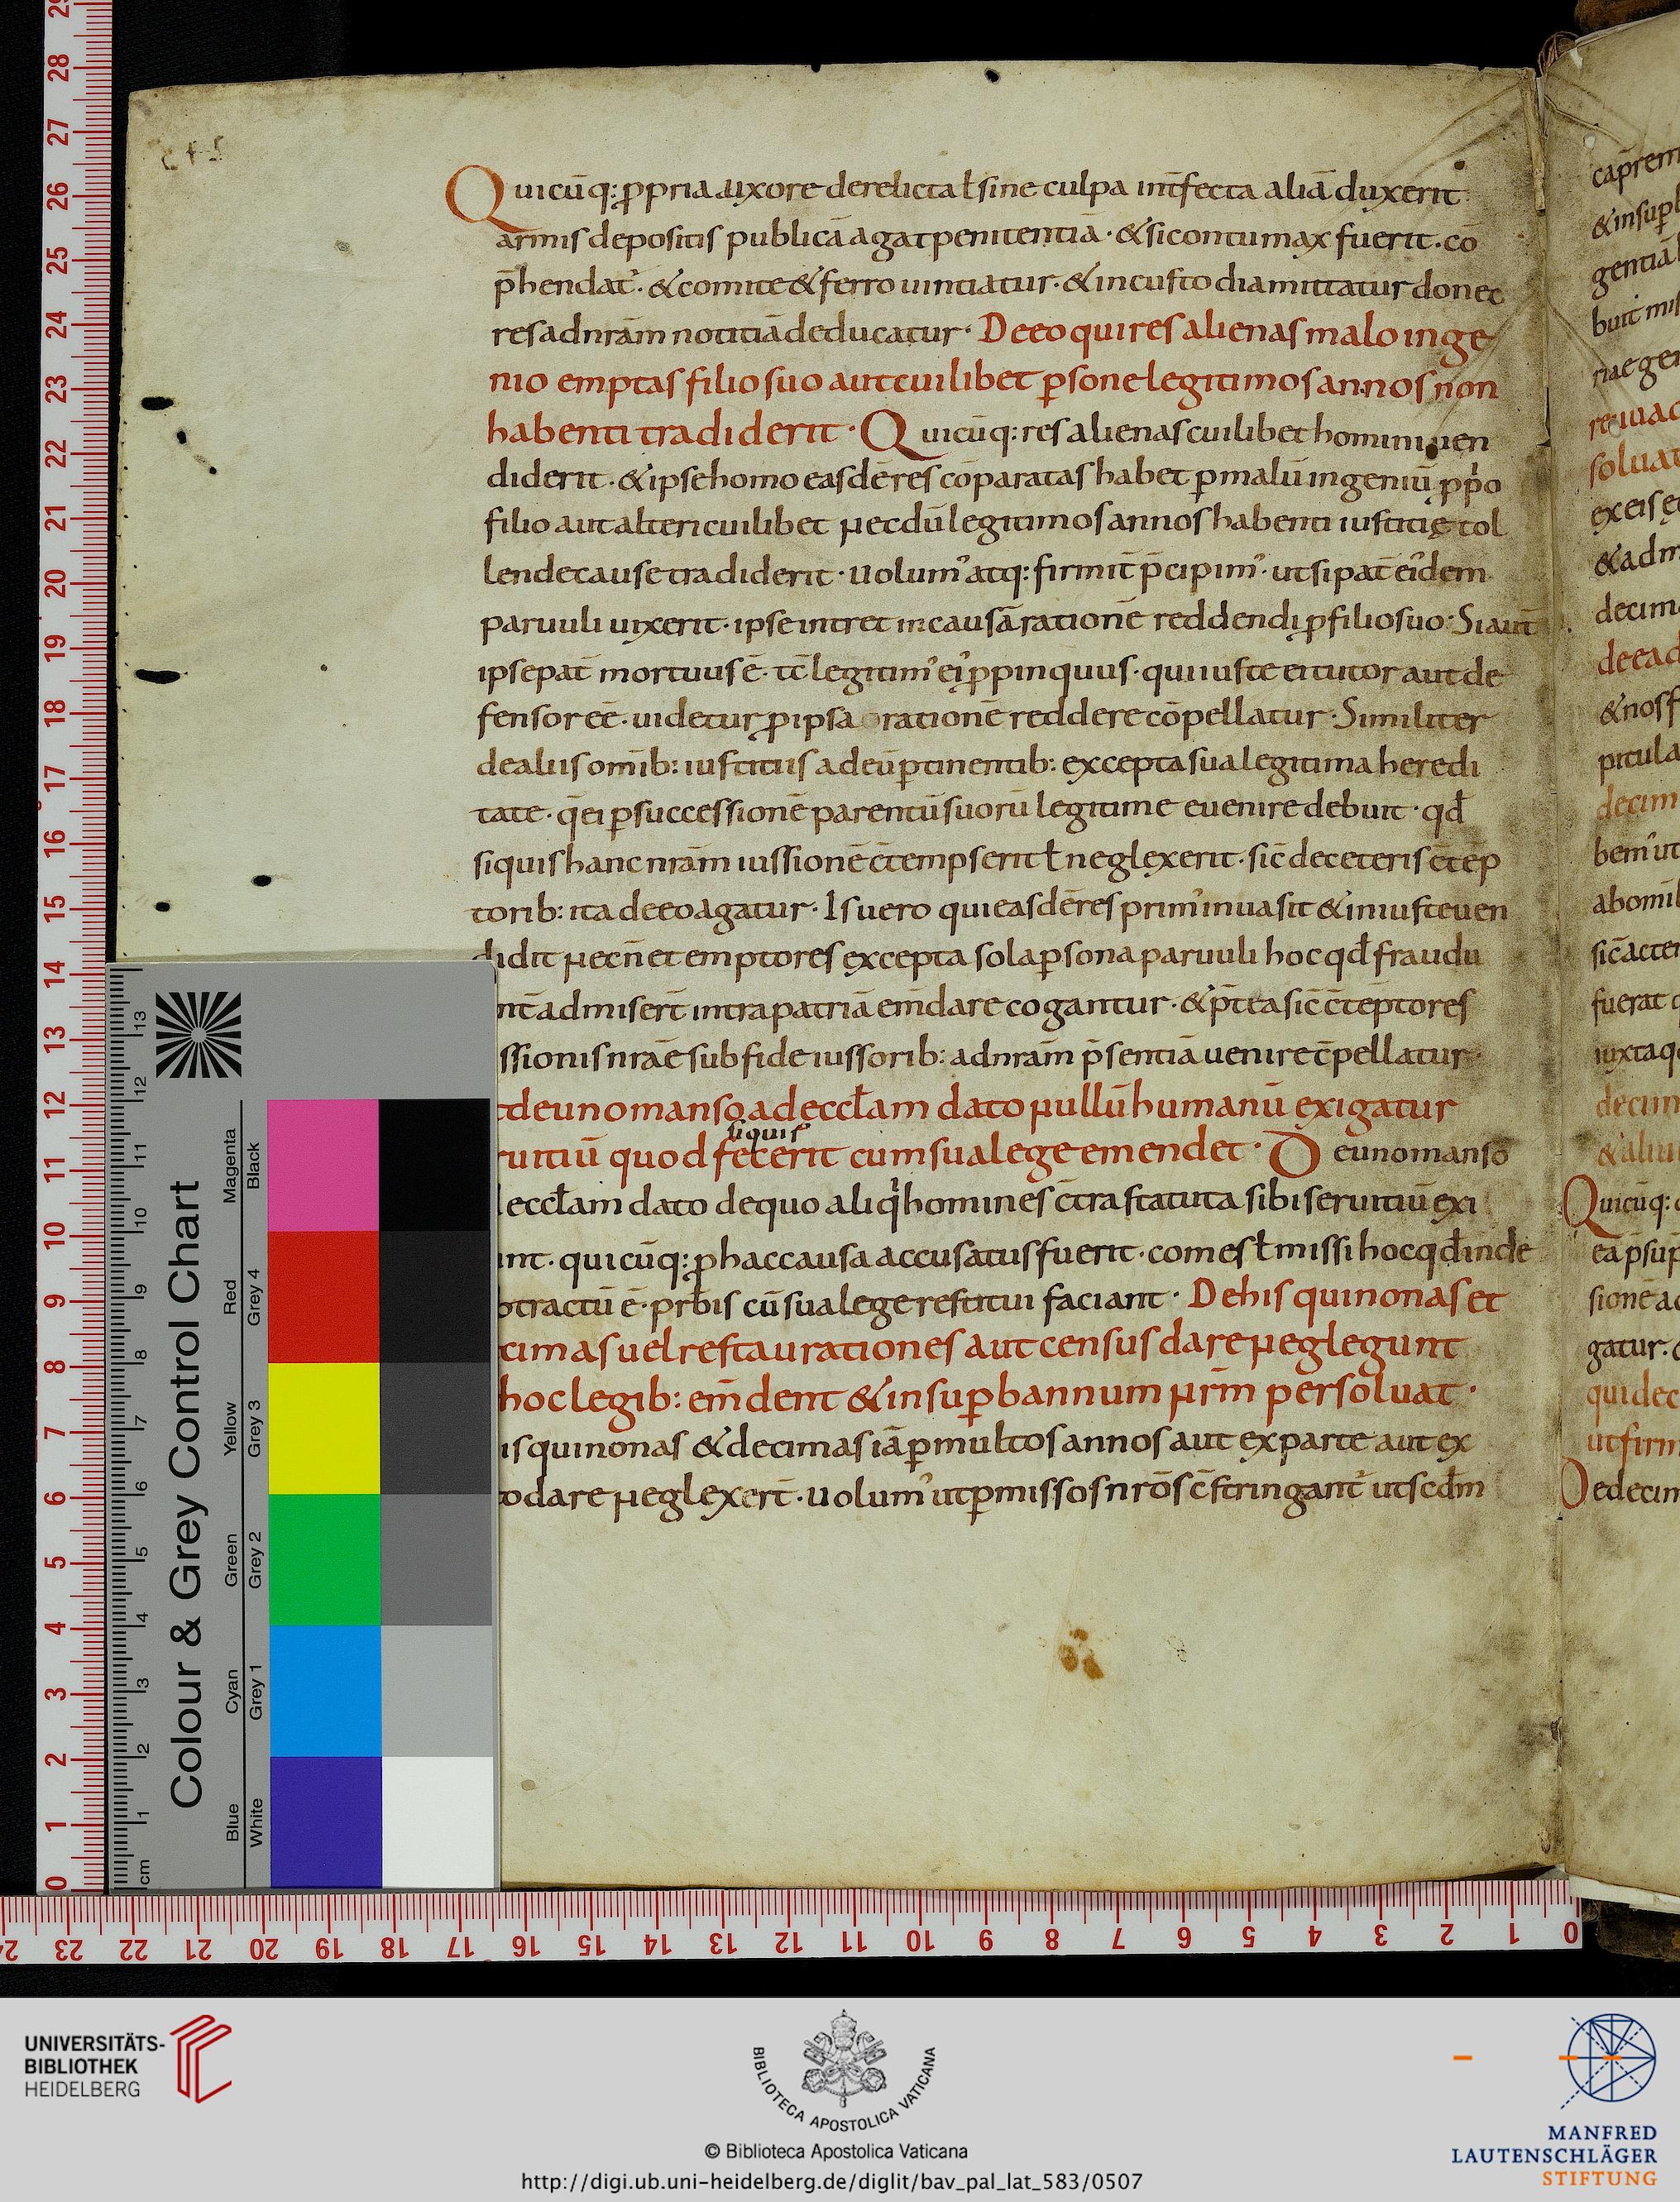 Quicūq: ꝓpria uxore derelicta ł sine culpa int̄fecta aliā duxerit
armis depositis publicā agat penitentiā · & si contumax fuerit · cō
p̄hendat᷑ · & comite & ferro uintiatur · & in custodia mittatur donec
res ad nrām notitiā deducatur · De eo qui res alienas malo inge
nio emptas filio suo aut cuilibet ꝑsone legitimos annos non
habenti tradiderit · Quicūq: res alienas cuilibet homini uen
diderit · & ipse homo easdē res cōparatas habet ꝑ malū ingeniū ꝓp̄o
filio aut alteri cuilibet necdū legitimos annos habenti iustitię tol
lende cause tradiderit · uolum᾽ atq: firmit̄ p̄cipim᾽ · ut si pat̄ ei᾽dem
paruuli uixerit · ipse intret in causā rationē reddendi ꝓ filio suo · Si aut̄
ipse pat̄ mortuus ē · tc̄ legitim᾽ ei᾽ ꝓpinquus · qui iuste ei tutor aut de
fensor eē · uidetur ꝓ ipsa rationē reddere cōpellatur · Similiter
de aliis omīb: iustitiis ad eū ꝑtinentib: excepta sua legitima heredi
tate · q̄ ei ꝑ successionē parentū suorū legitime euenire debuit · qđ
si quis hanc nrām iussionē c̄tempserit ł neglexerit · sic̄ de ceteris c̄tēp
torib: ita de eo agatur · Is uero qui easdē res prim᾽ inuasit & iniuste uen
didit necn̄ et emptores excepta sola ꝑsona paruuli hoc qđ fraudu
nt̄ admisert̄ intra patriā em̄dare cogantur · & p̄tea sic̄ c̄tēptores
ssionis nrae sub fideiussorib: ad nrām p̄sentiā uenire c̄pellatur
t de uno manso ad eccłam dato nullū humanū exigatur
siquis
ruitiū quod fecerit cum sua lege emendet · De uno manso
eccłam dato de quo aliq̇ homines c̄tra statuta sibi seruitiū exi
unt · quicūq: ꝓ hac causa accusatus fuerit · comes ł missi hoc qđ inde
btractū ē · prb̄is cū sua lege restitui faciant · De his qui nonas et
cimas uel restaurationes aut census dare neglegunt
hoc legib: em̄dent & insuꝑ bannum nrm̄ persoluat ·
is qui nonas & decimas iā ꝑ multos annos aut ex parte aut ex
o dare neglexert̄ · uolum᾽ ut ꝑ missos nrōs c̄stringant᷑ ut scd̄m
Colour & Grey Control Chart
Magenta
Black
Red
Grey 4
Yellow
Grey 3
Green
Grey 2
Cyan
Grey 1
Blue
White
cm
UNIVERSITÄTS-
BIBLIOTHEK
HEIDELBERG
BIBLIOTECA APOSTOLICA VATICANA
© Biblioteca Apostolica Vaticana
http://digi.ub.uni-heidelberg.de/diglit/bav_pal_lat_583/0507
MANFRED
LAUTENSCHLÄGER
STIFTUNG